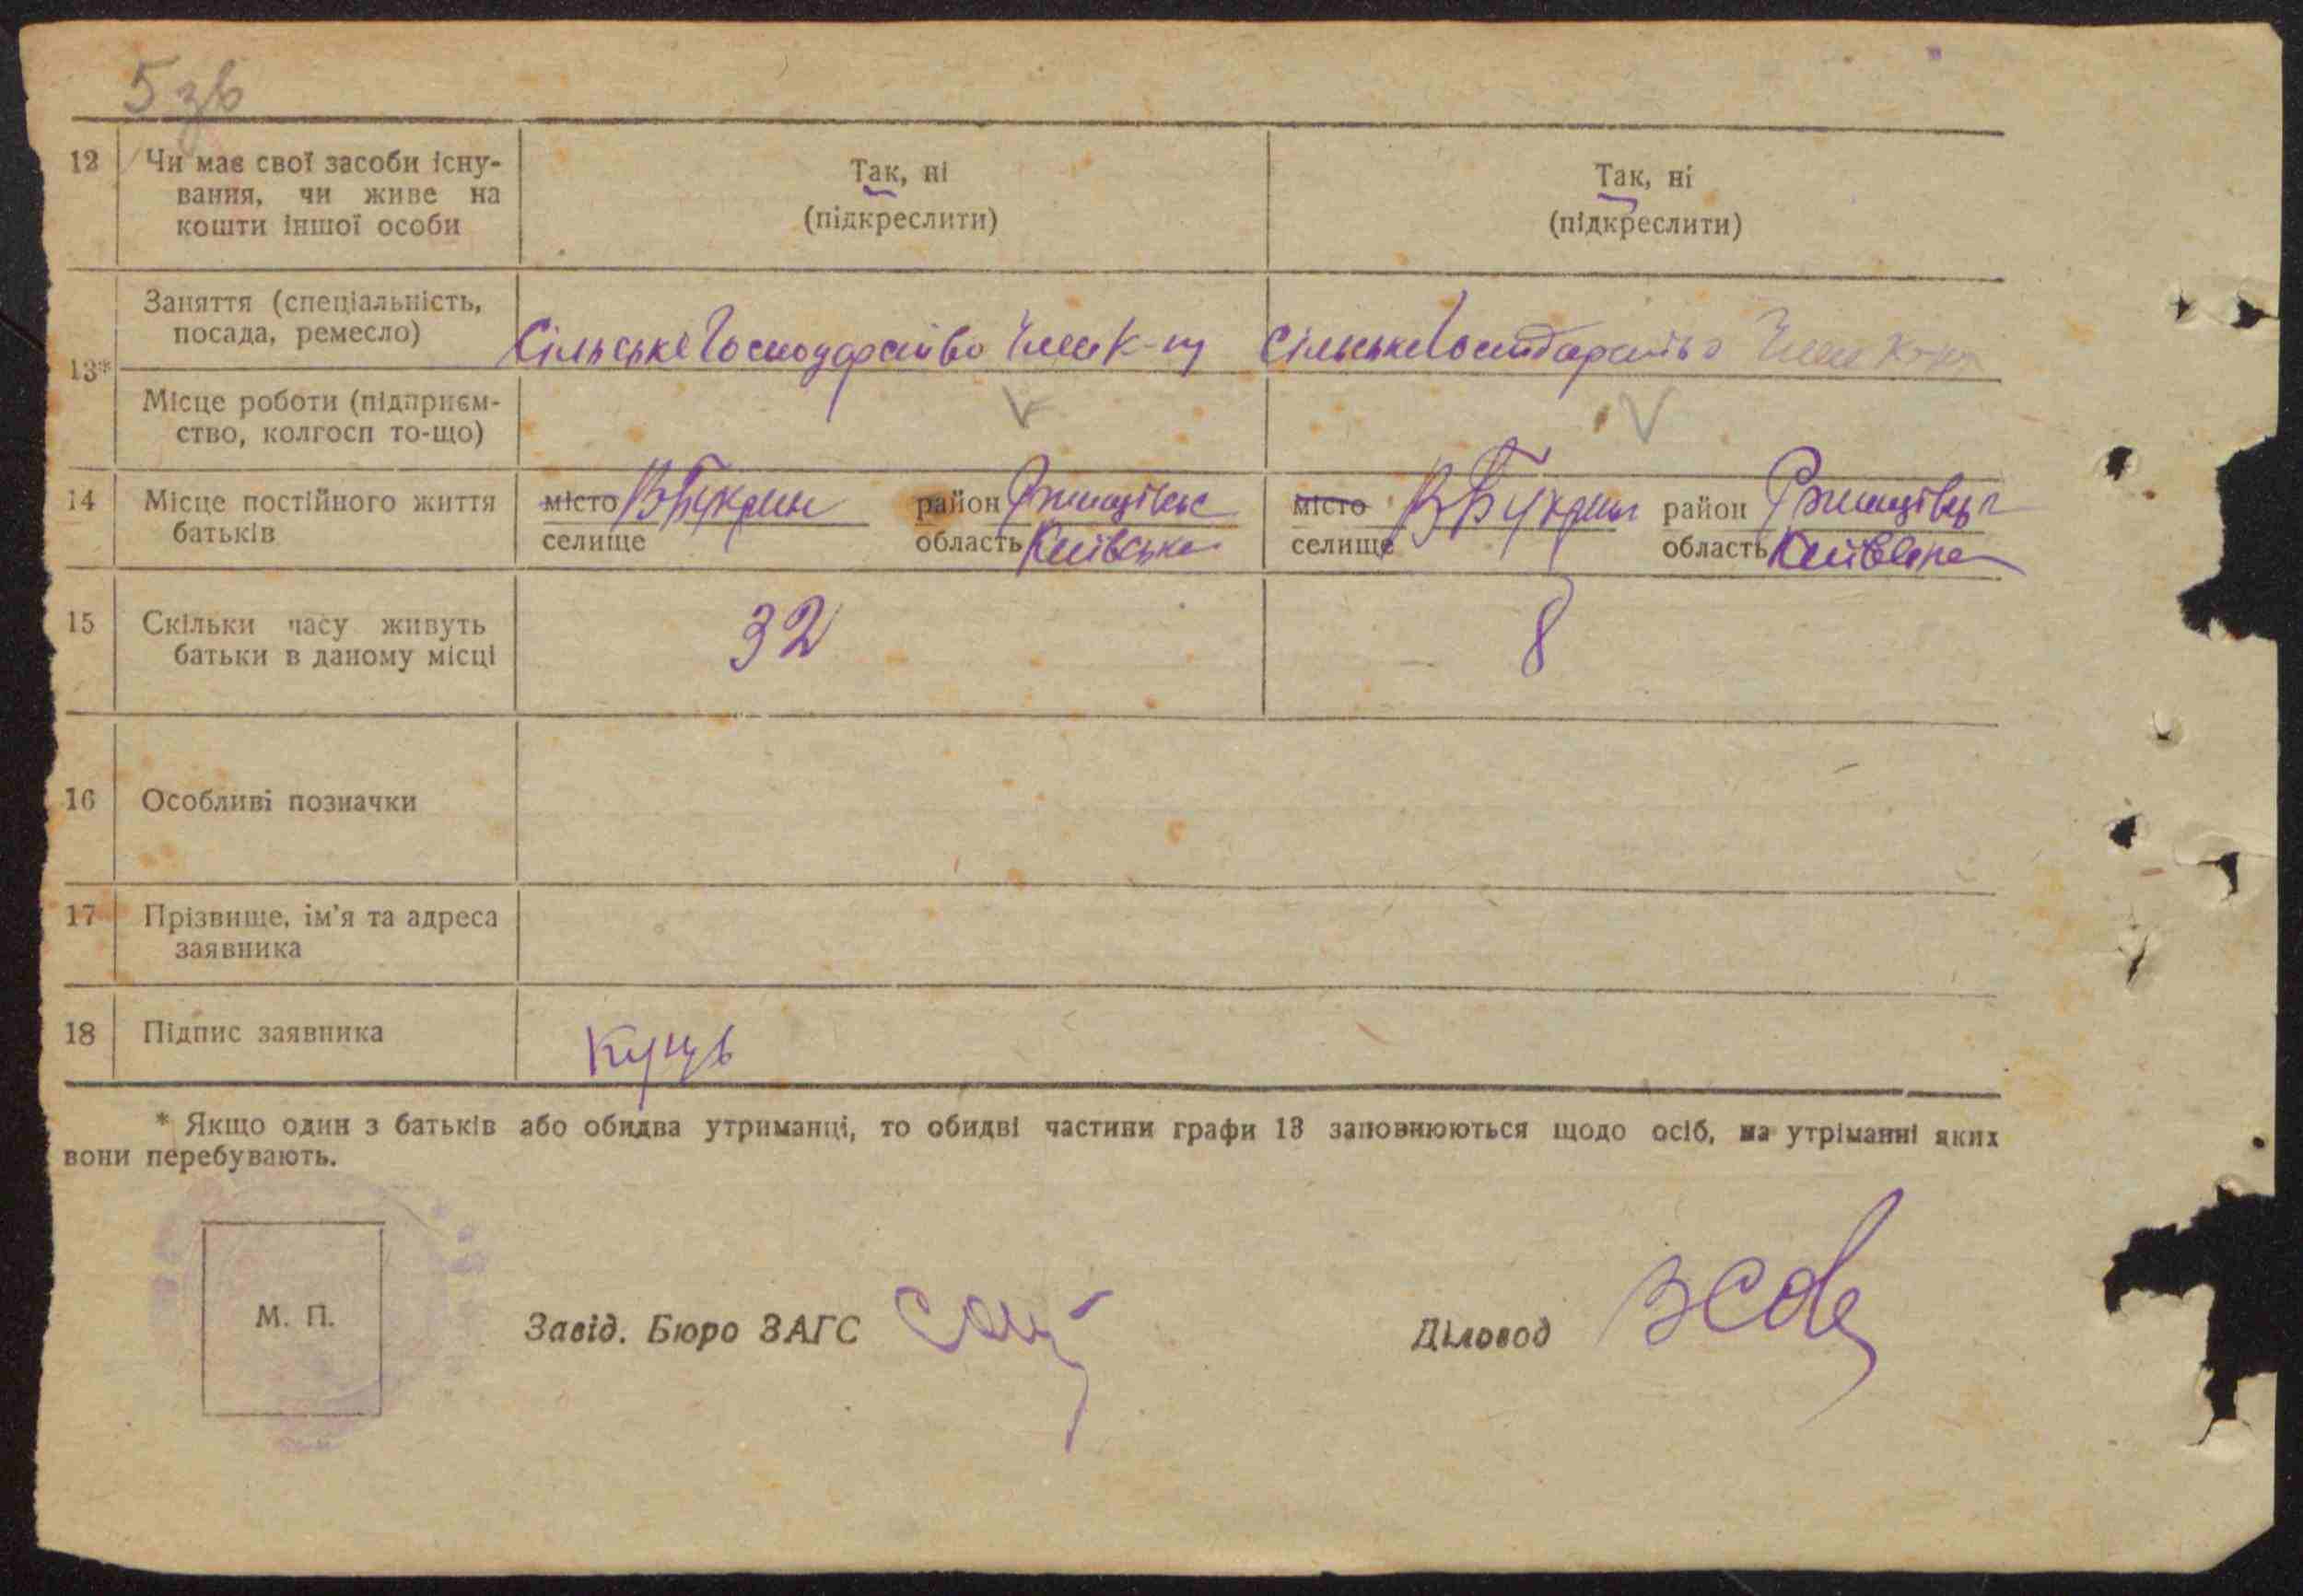 5 зв
12 Чи має свої засоби існу-
вання, чи живе на
кошти іншої особи
Так, ні
(підкреслити)
Так, ні
(підкреслити)
13*
Заняття (спеціальність,
посада, ремесло)
Сільське Господарство Член К-пу
Сільське Господарство Член
Місце роботи (підприєм-
ство, колгосп то-що)
V
V
14 Місце постійного життя
батьків
місто В Букрин район Ржищівськ
селище область Київська
місто В Букрин район Ржищівськ
селище область Київська
15 Скільки часу живуть
батьки в даному місці
32
8
16 Особливі позначки
17 Прізвище, ім'я та адреса
заявника
18 Підпис заявника
Куць
* Якщо один з батьків або обидва утриманці, то обидві частини графи 13 заповнюються щодо осіб, на утріманні яких
вони перебувають.
М. П.
Завід. Бюро ЗАГС
Діловод